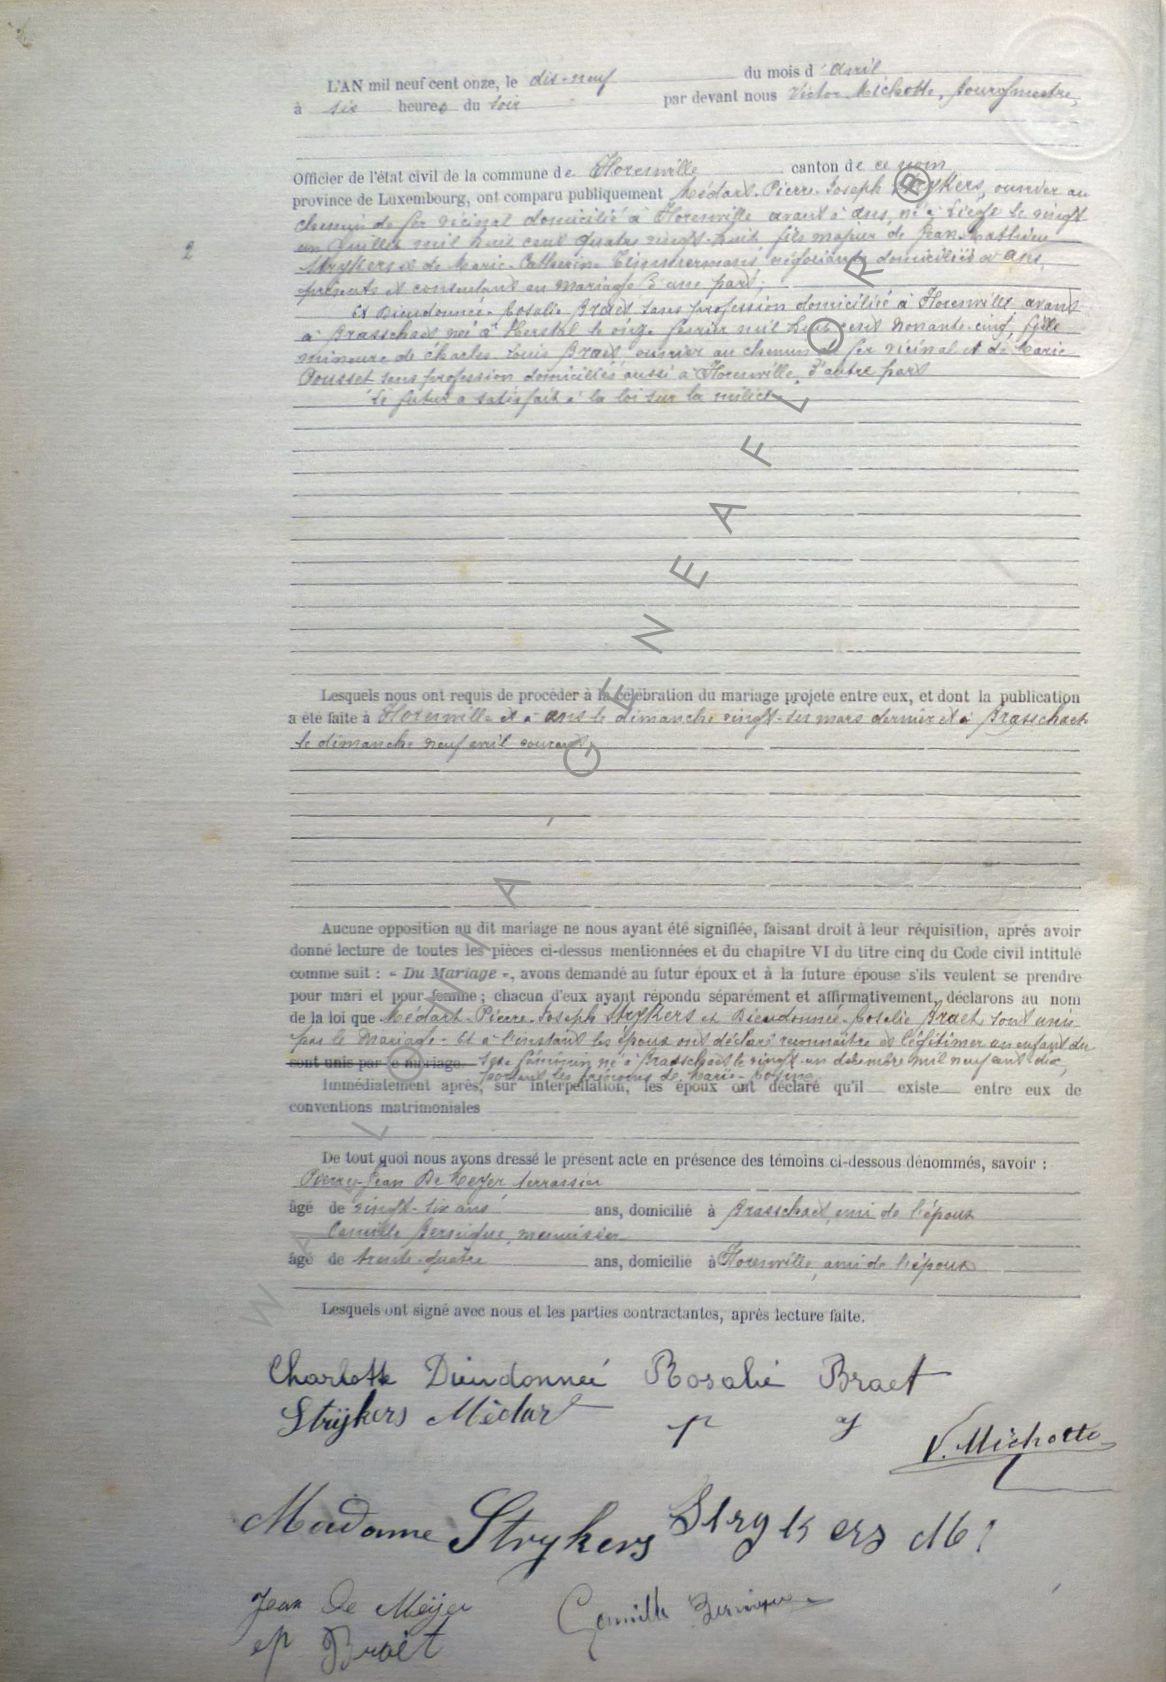 L'AN mil neuf cent onze, le dix-neuf du mois d'avril
à six heures du soir par devant nous Victor Michotte, bourgmestre,
Officier de l'état civil de la commune de Florenville canton de ce nom
province de Luxembourg, ont comparu publiquement Médart-Pierre-Joseph Strykers, ouvrier au
chemin de fer vicinal domicilié à Florenville avant à ans, né à Liège le vingt
un Juillet mil huit cent quatre vingt-huit fils majeur de Jean-Mathieu
Strykers et de Marie-Catherine Timmermans négociants domiciliés à ans,
présents et consentant au mariage d'une part;
Et Dieudonnée-Rosalie Braet sans profession domiciliée à Florenville avant
à Brasschaet née à Herstal le onze février mil huit cent nonante-cinq, fille
mineure de Charles-Louis Braet ouvrier au chemin de fer vicinal et de Marie
Pousset sans profession domiciliés aussi à Florenville, d'autre part
Le futur a satisfait à la loi sur la milice
2
Lesquels nous ont requis de procéder à la célébration du mariage projeté entre eux, et dont la publication
a été faite à Florenville et à ans le dimanche vingt-six mars dernier et à Brasschaet
le dimanche neuf avril courant
Aucune opposition au dit mariage ne nous ayant été signifiée, faisant droit à leur réquisition, après avoir
donné lecture de toutes les pièces ci-dessus mentionnées et du chapitre VI du titre cinq du Code civil intitulé
comme suit : « Du Mariage », avons demandé au futur époux et à la future épouse s'ils veulent se prendre
pour mari et pour femme ; chacun d'eux ayant répondu séparément et affirmativement, déclarons au nom
de la loi que Médart-Pierre-Joseph Strykers et Dieudonnée-Rosalie Braet sont unis
par le mariage - Et à l'instant les époux ont déclaré reconnaître et légitimer un enfant du
sont unis par le mariage sexe féminin né à Brasschaet le vingt-un décembre mil neuf cent dix,
portant les prénoms de Marie-Rosine
Immédiatement après, sur interpellation, les époux ont déclaré qu'il existe entre eux de
conventions matrimoniales
De tout quoi nous avons dressé le présent acte en présence des témoins ci-dessous dénommés, savoir :
Pierre-Jean De Meyer terrassier
âgé de vingt-six ans ans, domicilié à Brasschaet, ami de l'époux
Camille, menuisier
âgé de trente-quatre ans, domicilié à Florenville, ami de l'époux
Lesquels ont signé avec nous et les parties contractantes, après lecture faite.
Charlotte Dieudonneé Rosalie Braet
Strijkers Médart p J
V. Michotte
Madame Strykers Strykers M!
Jean De Meijer Camille
ep Braet
WWW.GENEAFLOR®